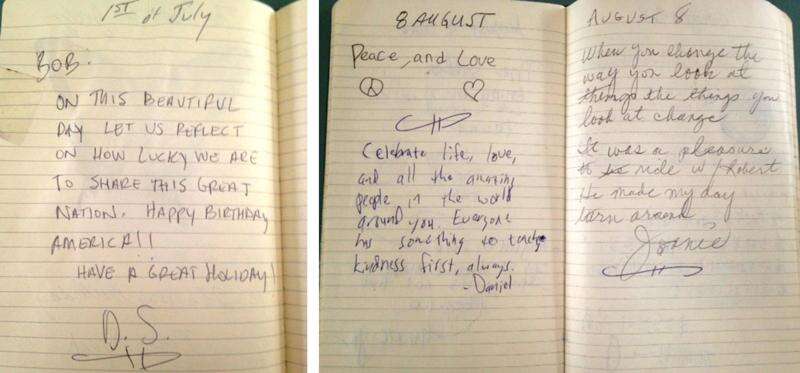 1ST of July
BOB.
ON THIS BEAUTIFUL
DAY LET US REFLECT
ON HOW LUCKY WE ARE
TO SHARE THIS GREAT
NATION. HAPPY BIRTHDAY
AMERICA!!
HAVE A GREAT HOLIDAY!
D.S.
8 AUGUST
Peace, and Love
Celebrate life, love,
and all the amazing
people in the world
around you. Everyone
has something to teach
kindness first, always.
- Daniel
AUGUST 8
When you change the
way you look at
things the things you
look at change
It was a pleasure
to ride w/ Robert
He made my day
turn around
Joanie